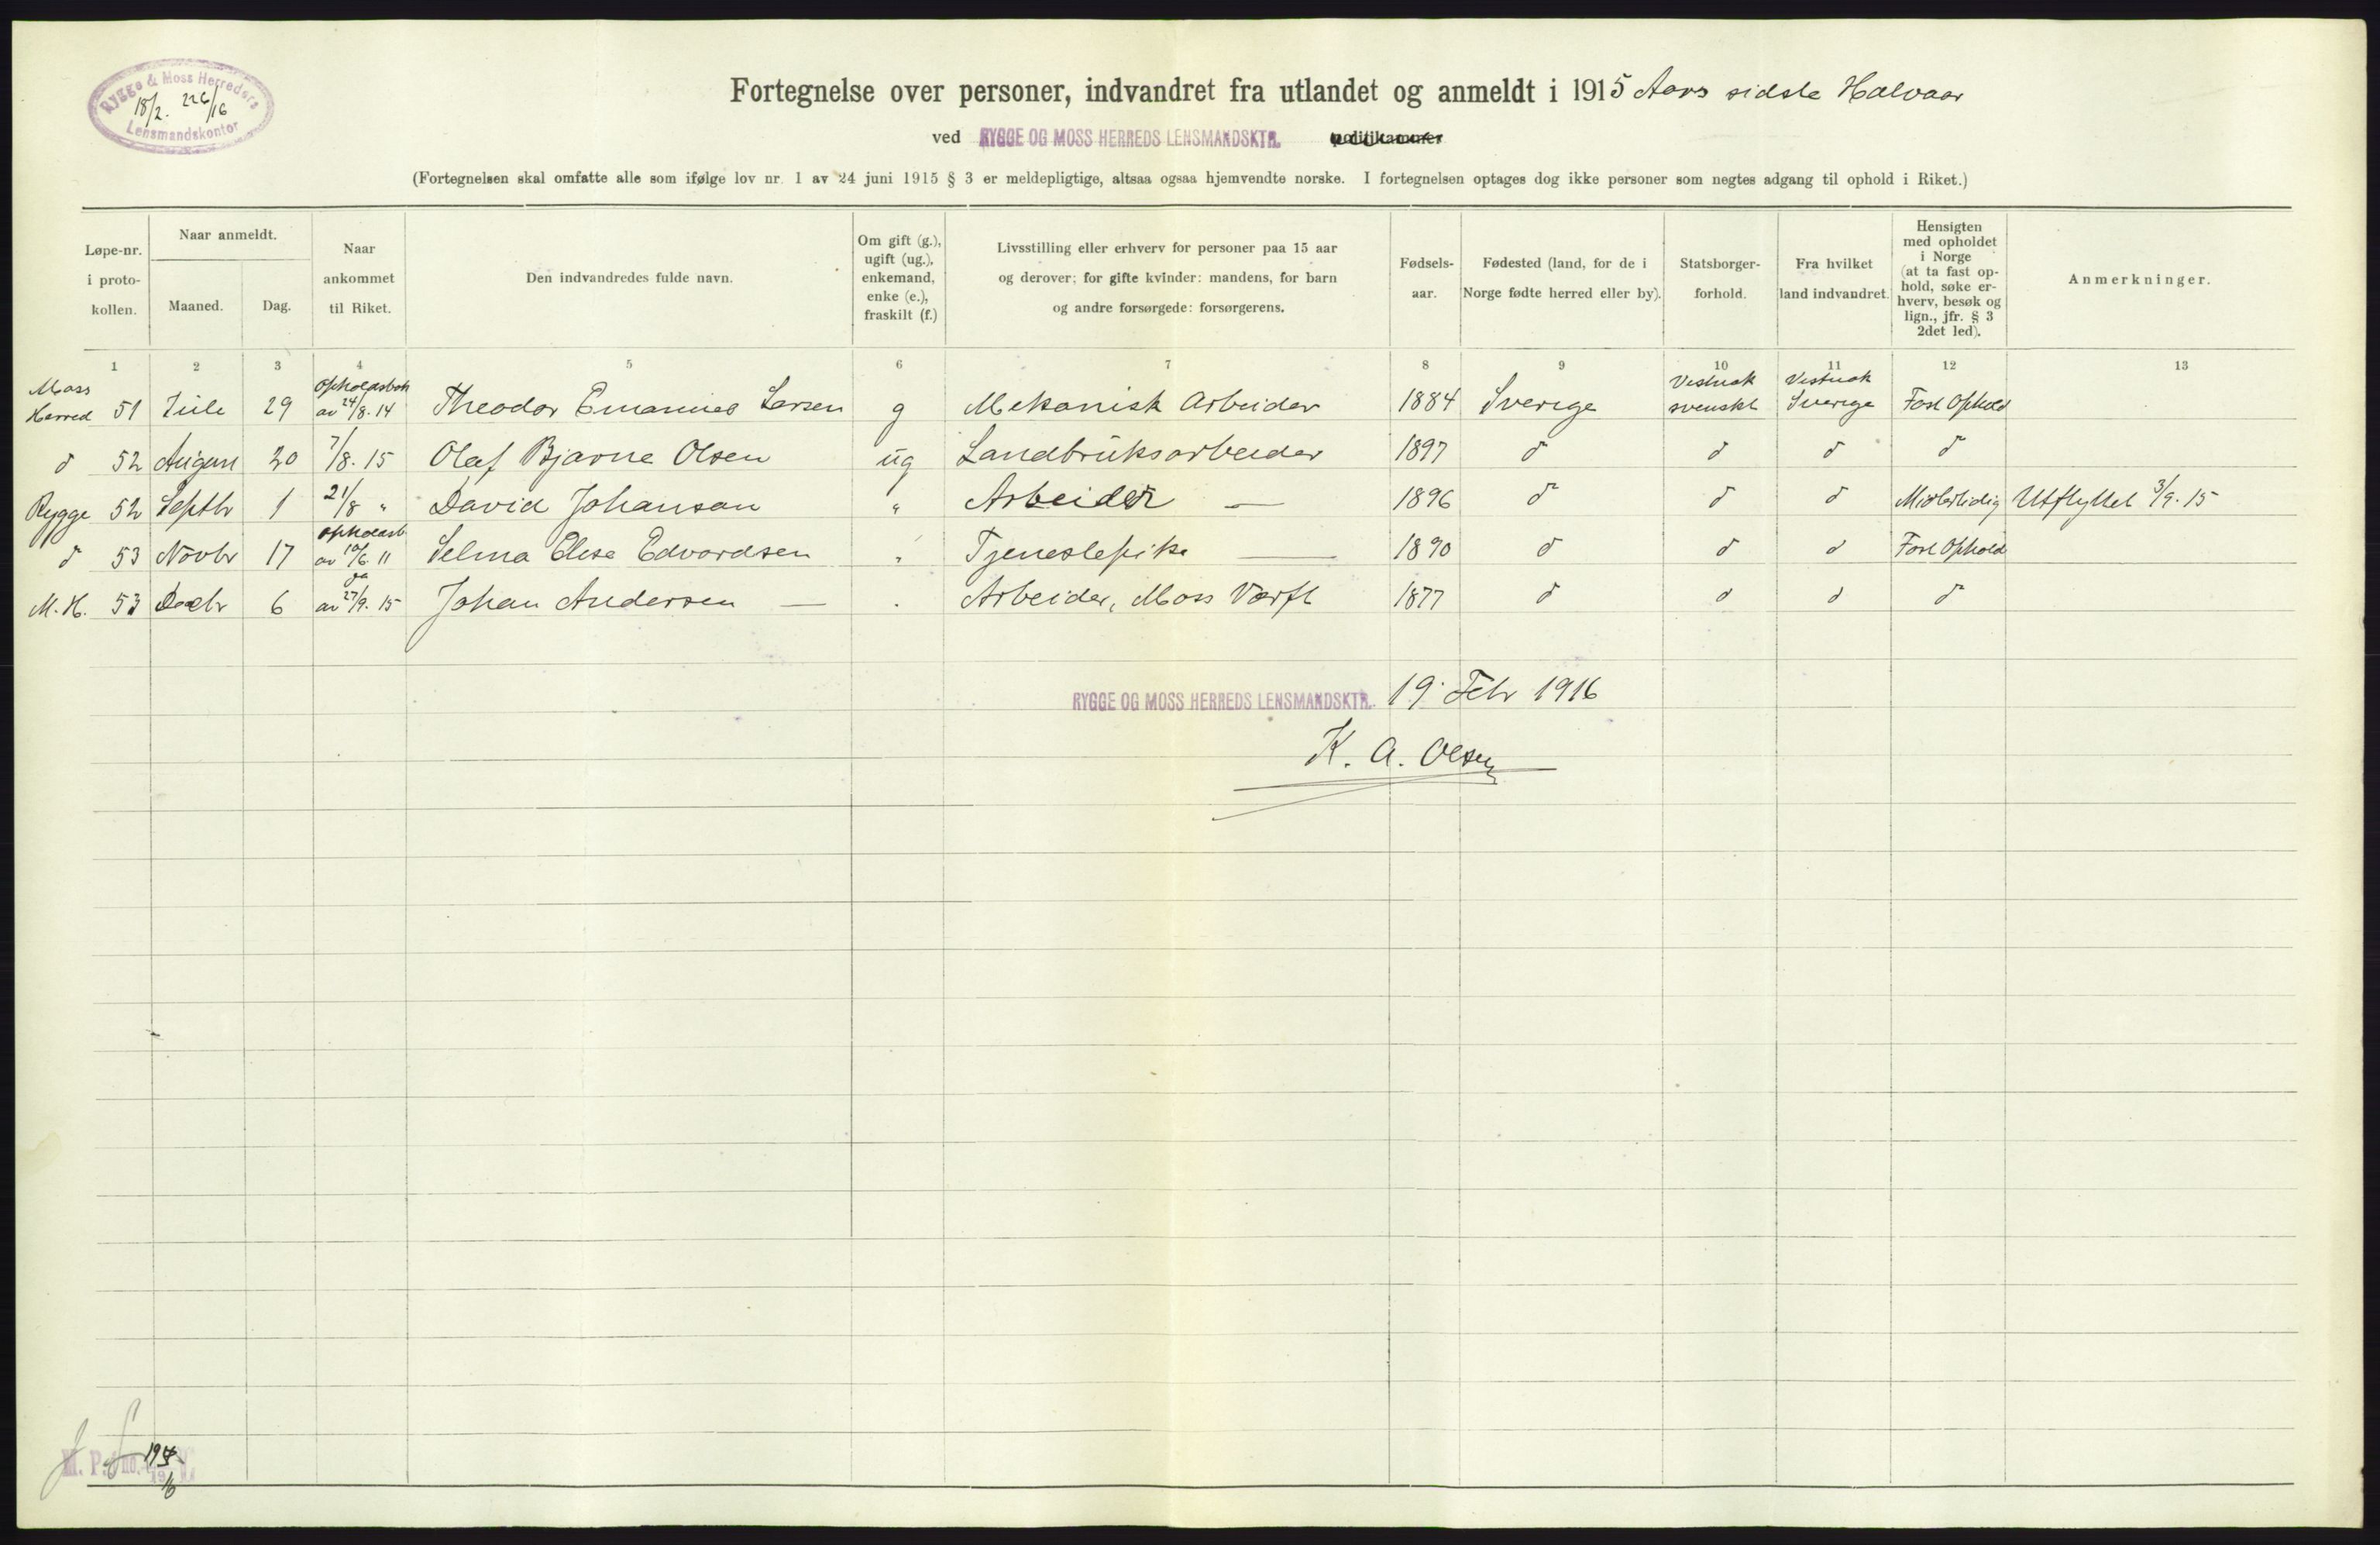 Rygge & Moss Herreders
18/2. 226/16
Lensmandskontor
Fortegnelse over personer, indvandret fra utlandet og anmeldt i 1915 Aars sidste Halvaar
ved RYGGE OG MOSS HERREDS LENSMANDSKTR. politikammer
(Fortegnelsen skal omfatte alle som ifølge lov nr. 1 av 24 juni 1915 § 3 er meldepligtige, altsaa ogsaa hjemvendte norske. I fortegnelsen optages dog ikke personer som negtes adgang til ophold i Riket.)
Løpe-nr. i proto-kollen.
Naar anmeldt.
Maaned.
Dag.
Naar ankommet til Riket.
Den indvandredes fulde navn.
Om gift (g.), ugift (ug.), enkemand, enke (e.), fraskilt (f.)
Livsstilling eller erhverv for personer paa 15 aar og derover; for gifte kvinder: mandens, for barn og andre forsørgede: forsørgerens.
Fødsels-aar.
Fødested (land, for de i Norge fødte herred eller by).
Statsborger-forhold.
Fra hvilket land indvandret.
Hensigten med opholdet i Norge (at ta fast op-hold, søke er-hverv, besøk og lign., jfr. § 3 2det led).
Anmerkninger.
1 2 3 4 5 6 7 8 9 10 11 12 13
Moss Herred 51 Juli 29 Opholdsbok av 24/8. 14 Theodor Emanuel Larsen g Mekanisk Arbeider 1884 Sverige svensk Sverige Fast Ophold
d 52 August 20 7/8. 15 Olaf Bjarne Olsen ug Landbruksarbeider 1897 d d d d
Rygge 52 Septbr 1 21/8 " David Johanson " Arbeider — 1896 d d d Midlertidig Utflyttet 3/9. 15
d 53 Novbr 17 Opholdsb av 10/6. 11 Selma Elise Edvardsen " Tjenestepike — 1890 d d d Fast Ophold
M. H. 53 Decbr 6 da av 27/9. 15 Johan Andersen — " Arbeider, Moss Værft 1877 d d d d
RYGGE OG MOSS HERREDS LENSMANDSKTR. 19. Febr 1916
K. A. Olsen